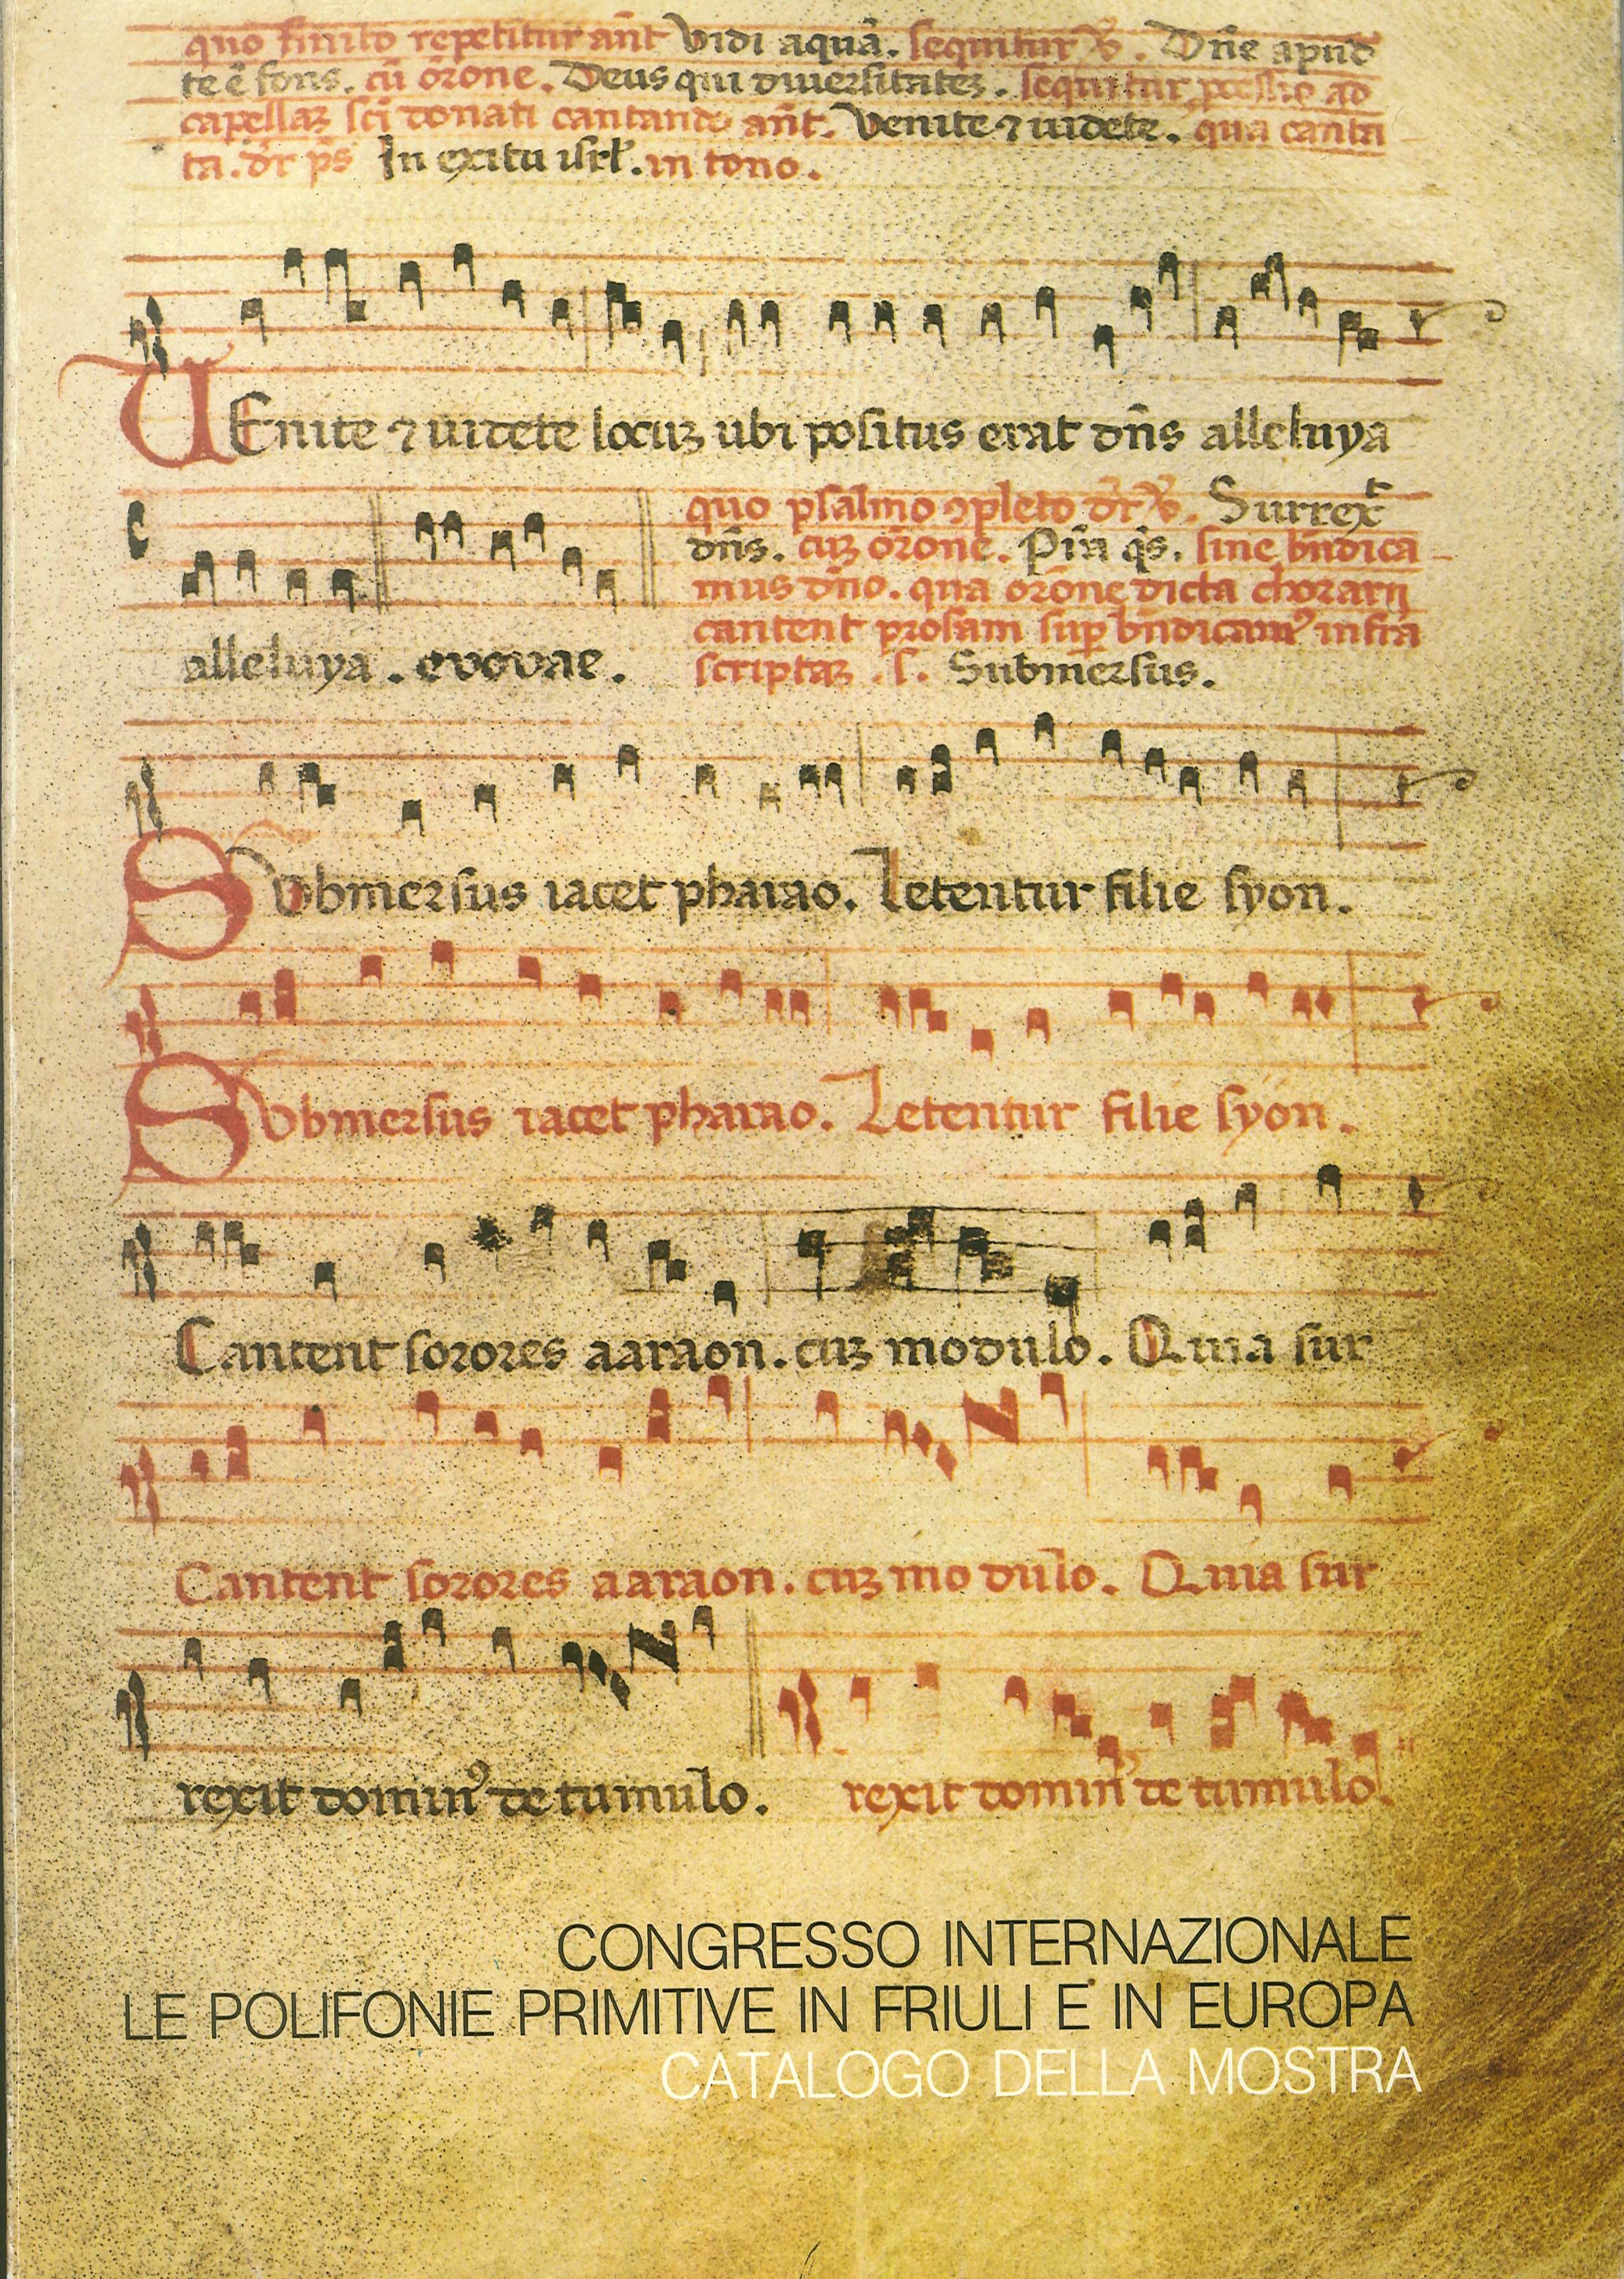 quo finito repetitur añt Vidi aquā. sequitur ℣. Dñe apud
te ē fons. cū ōrone. Deus qui diuersitateꝫ. sequitur ad
capellaꝫ sci donati cantando añt. Venite ⁊ uidete. qua canta
ta. dr ps In exitu isrl. in tono.
VEnite ⁊ uidete locuꝫ ubi positus erat dñs alleluya
quo psalmo ꝯpleto dr ℣. Surrex̄t
dñs. cuꝫ ōrone. Pr̄a qs. sine bñdica
mus dño. qua ōrone dicta chorarij
cantent prosam sup bñdicamꝰ infra
alleluya. evovae. scriptaꝫ .s. Submersus.
SVbmersus iacet pharao. Letentur filie syon.
SVbmersus iacet pharao. Letentur filie syon.
Cantent sorores aaraon. cuꝫ modulo. Quia sur
Cantent sorores aaraon. cuꝫ mo dulo. Quia sur
rexit dominꝰ de tumulo. rexit dominꝰ de tumulo.
CONGRESSO INTERNAZIONALE
LE POLIFONIE PRIMITIVE IN FRIULI E IN EUROPA
CATALOGO DELLA MOSTRA